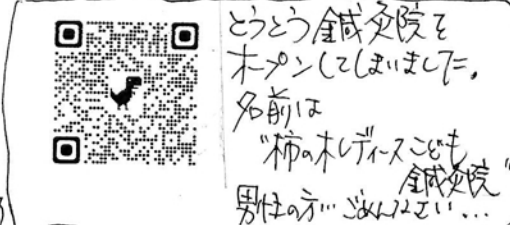 とうとう鍼灸院を
オープンしてしまいました。
名前は
"柿の木レディースこども
鍼灸院"
男性の方…ごめんなさい…